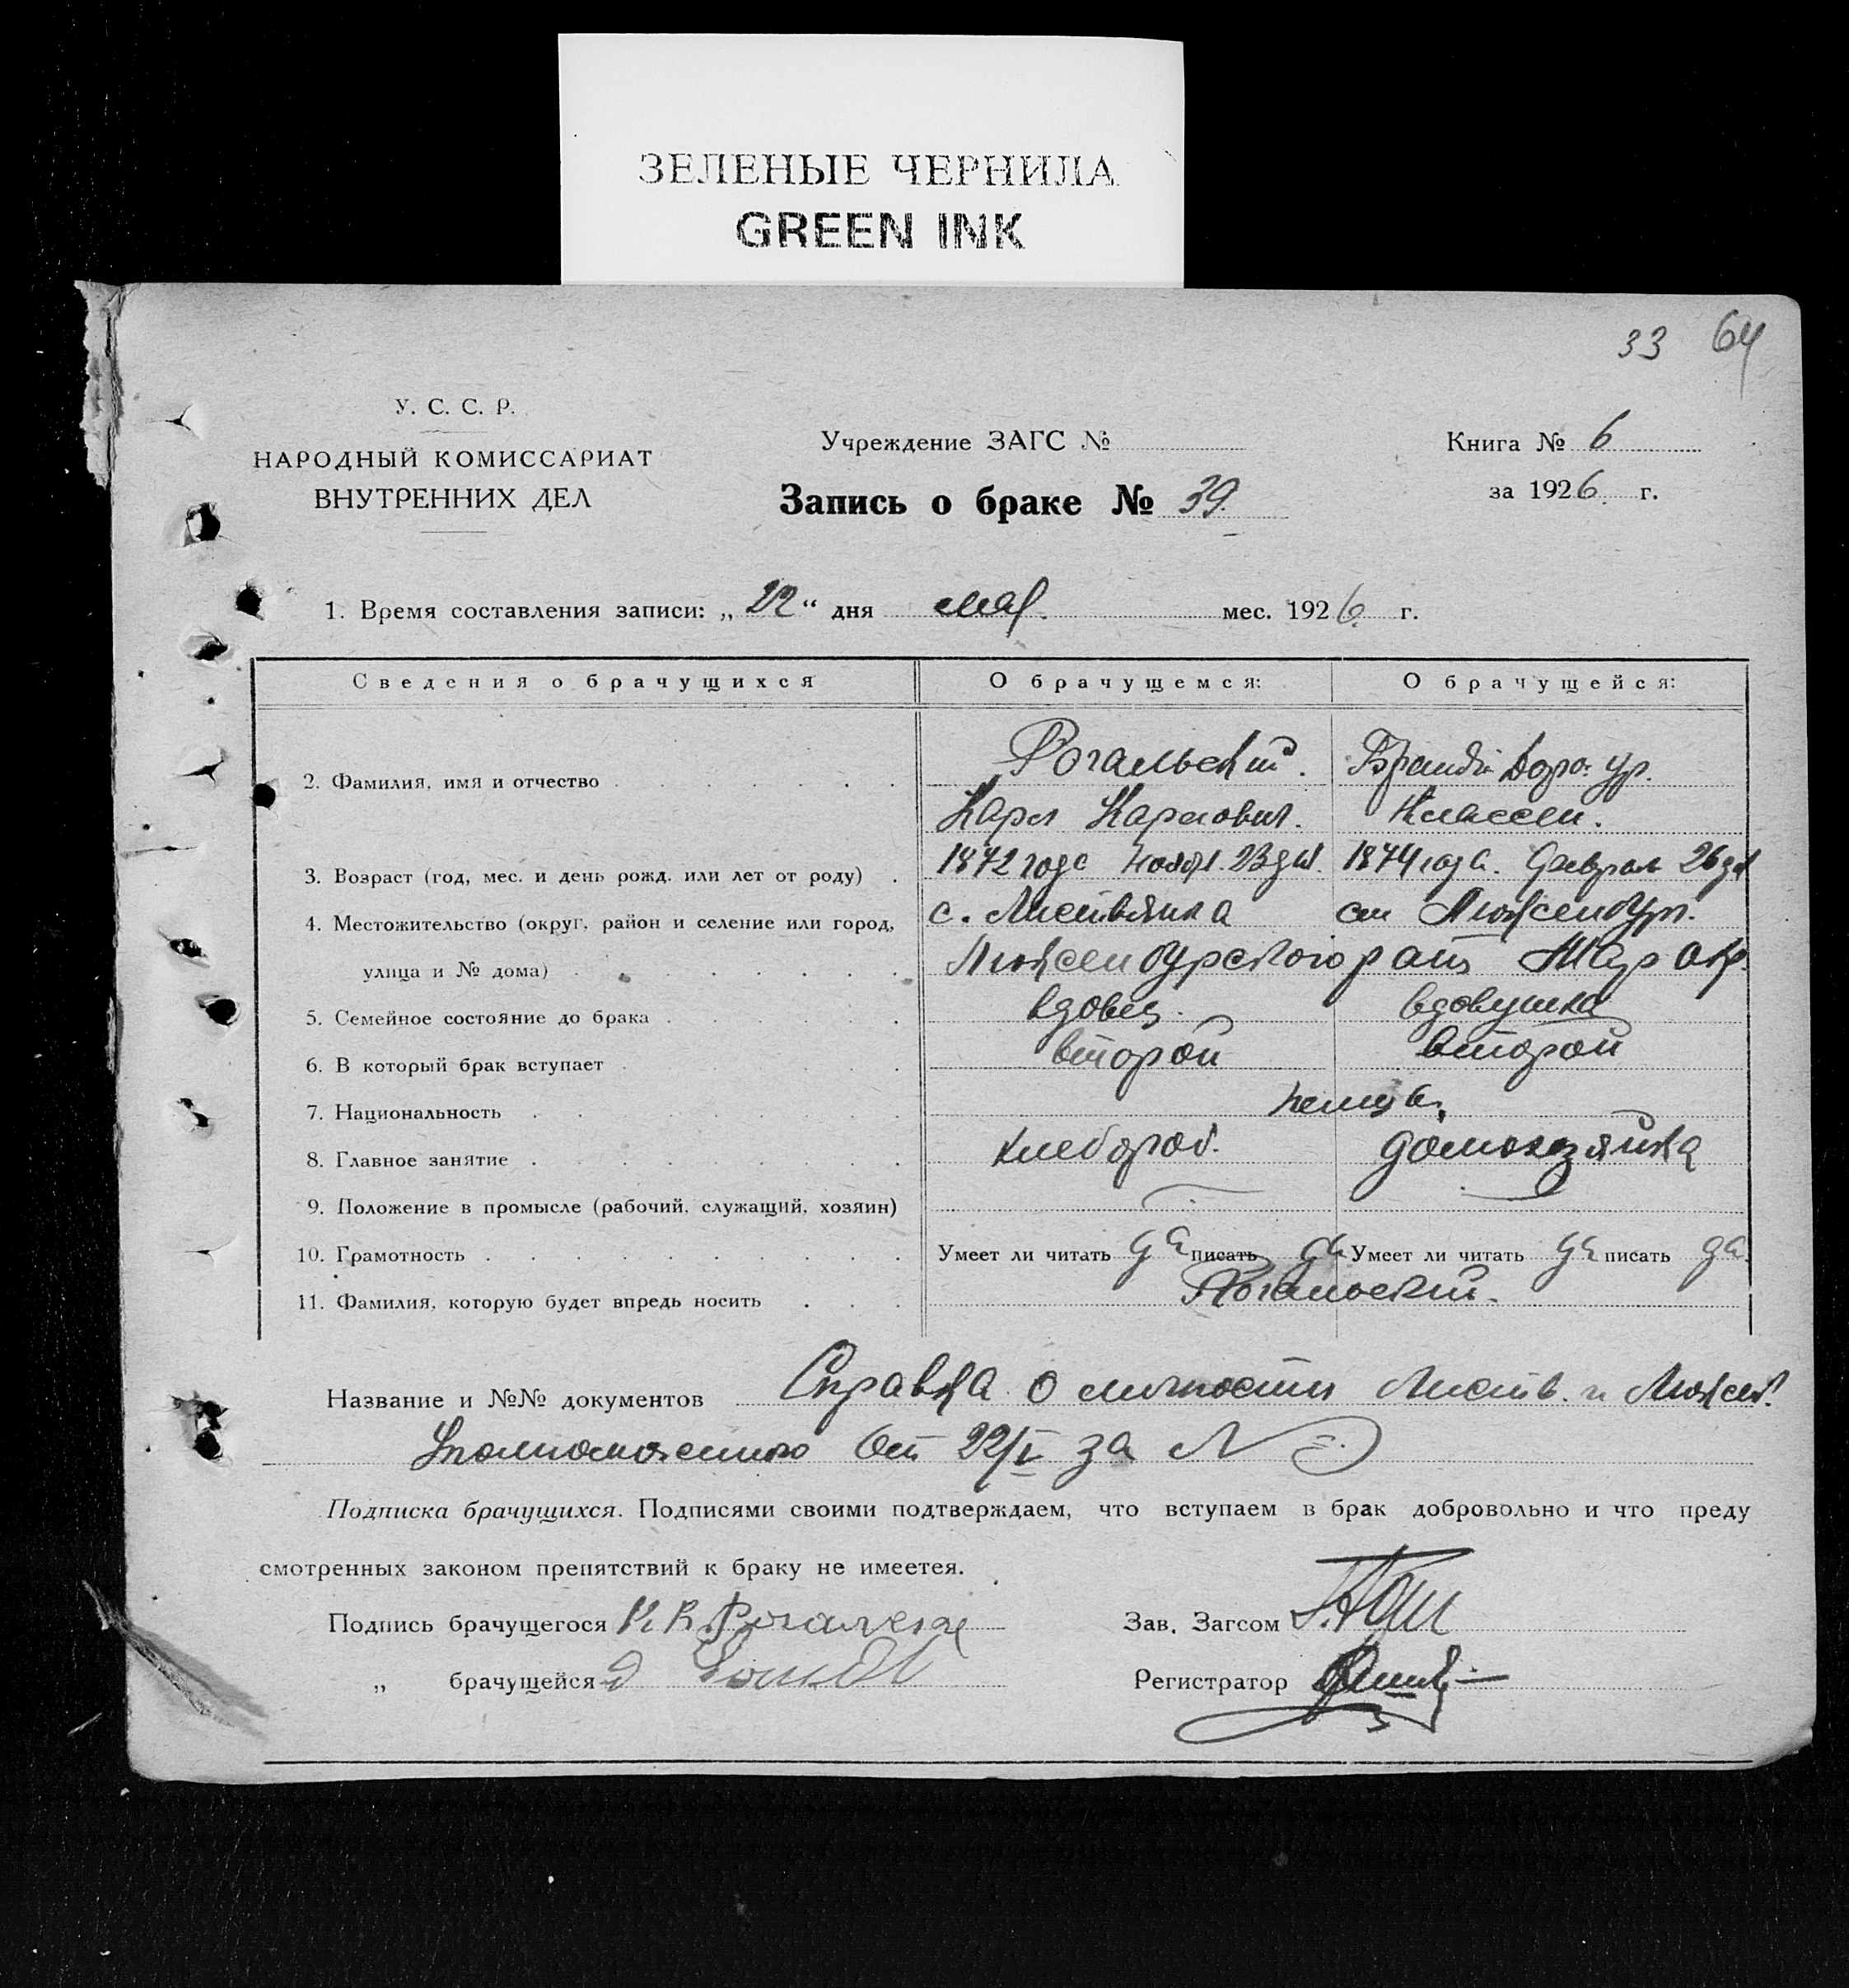 ЗЕЛЕНЫЕ ЧЕРНИЛА
GREEN INK
33 64
У. С. С. Р.
НАРОДНЫЙ КОМИССАРИАТ
ВНУТРЕННИХ ДЕЛ
Учреждение ЗАГС №
Запись о браке № 39.
Книга № 6
за 1926 г.
1. Время составления записи: „22“ дня мая. мес. 1926. г.
Сведения о брачущихся О брачущемся: О брачущейся:
2. Фамилия, имя и отчество Рогальский. Брандт Доро. ур.
Карл Карлович. Классен.
3. Возраст (год, мес. и день рожд. или лет от роду) 1872 года нояб. 23 дня. 1874 года. Февраля 26 дня
4. Местожительство (округ, район и селение или город, с. Листвянка Люксенбург.
улица и № дома) Люксенбургского
5. Семейное состояние до брака вдовец. вдовушка
6. В который брак вступает второй второй
7. Национальность немцы.
8. Главное занятие хлебороб. домохозяйка
9. Положение в промысле (рабочий, служащий, хозяин)
10. Грамотность Умеет ли читать да писать да Умеет ли читать да писать да.
11. Фамилия, которую будет впредь носить Рогальский.
Название и №№ документов Справка о личности Листв. и Люксен.
от 22/V за №
Подписка брачущихся. Подписями своими подтверждаем, что вступаем в брак добровольно и что преду
смотренных законом препятствий к браку не имеетея.
Подпись брачущегося
„ брачущейся
Зав. Загсом
Регистратор